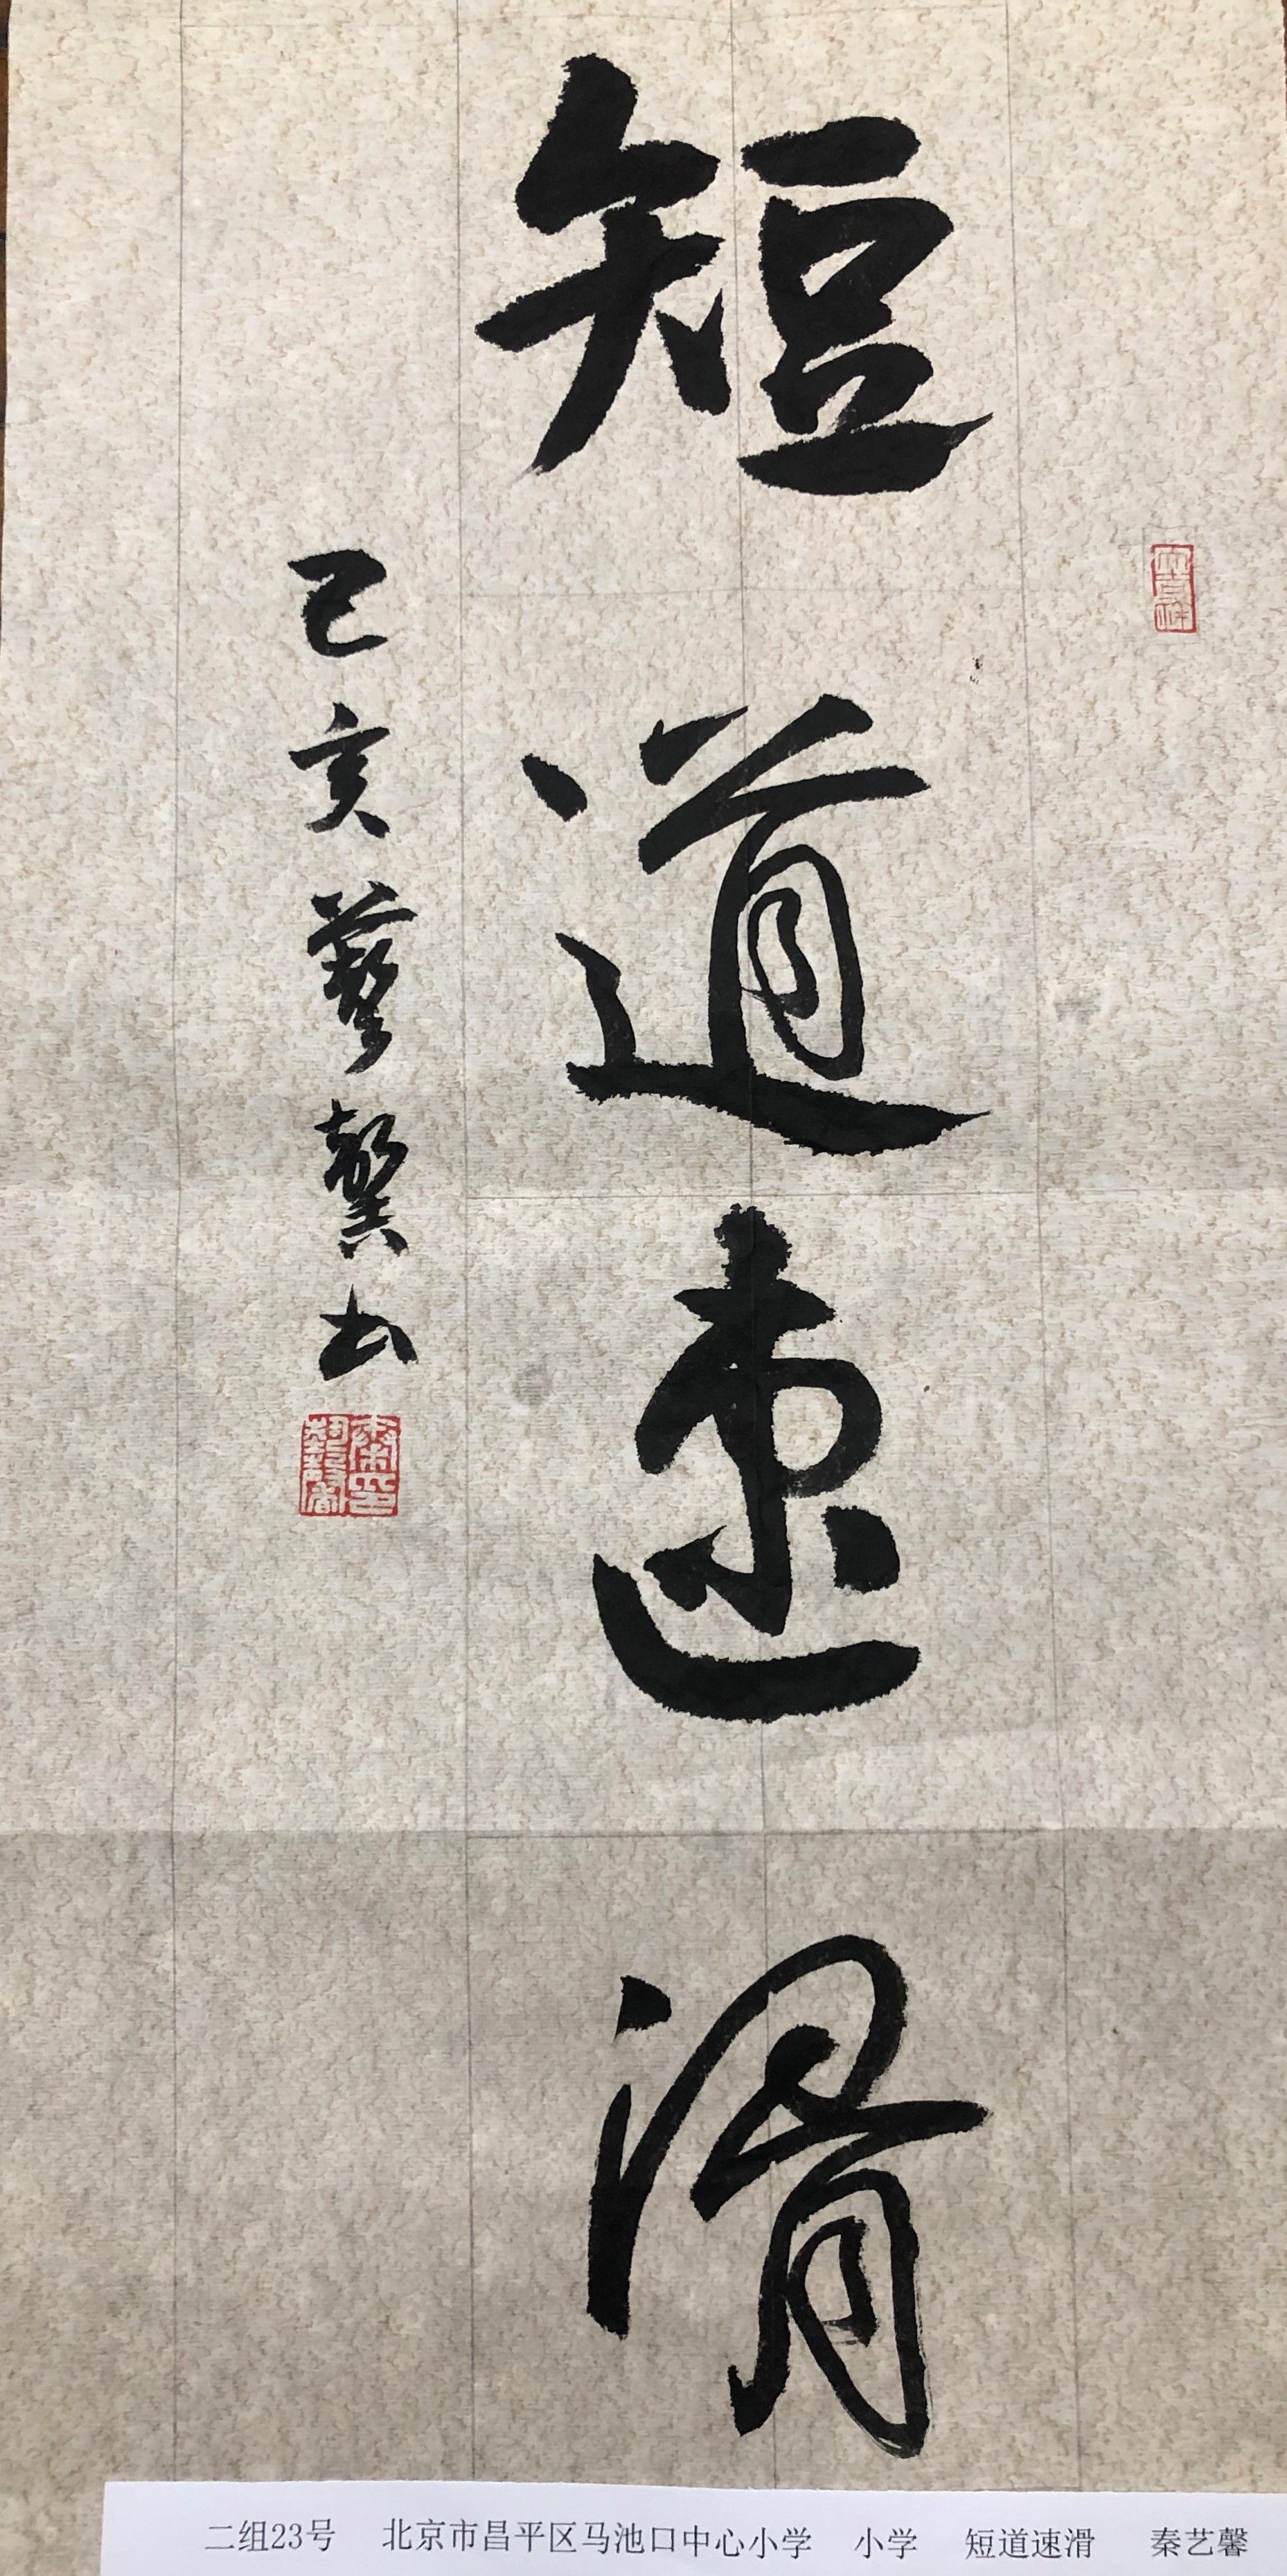 短道速滑
己亥藝馨书
二组23号 北京市昌平区马池口中心小学 小学 短道速滑 秦艺馨